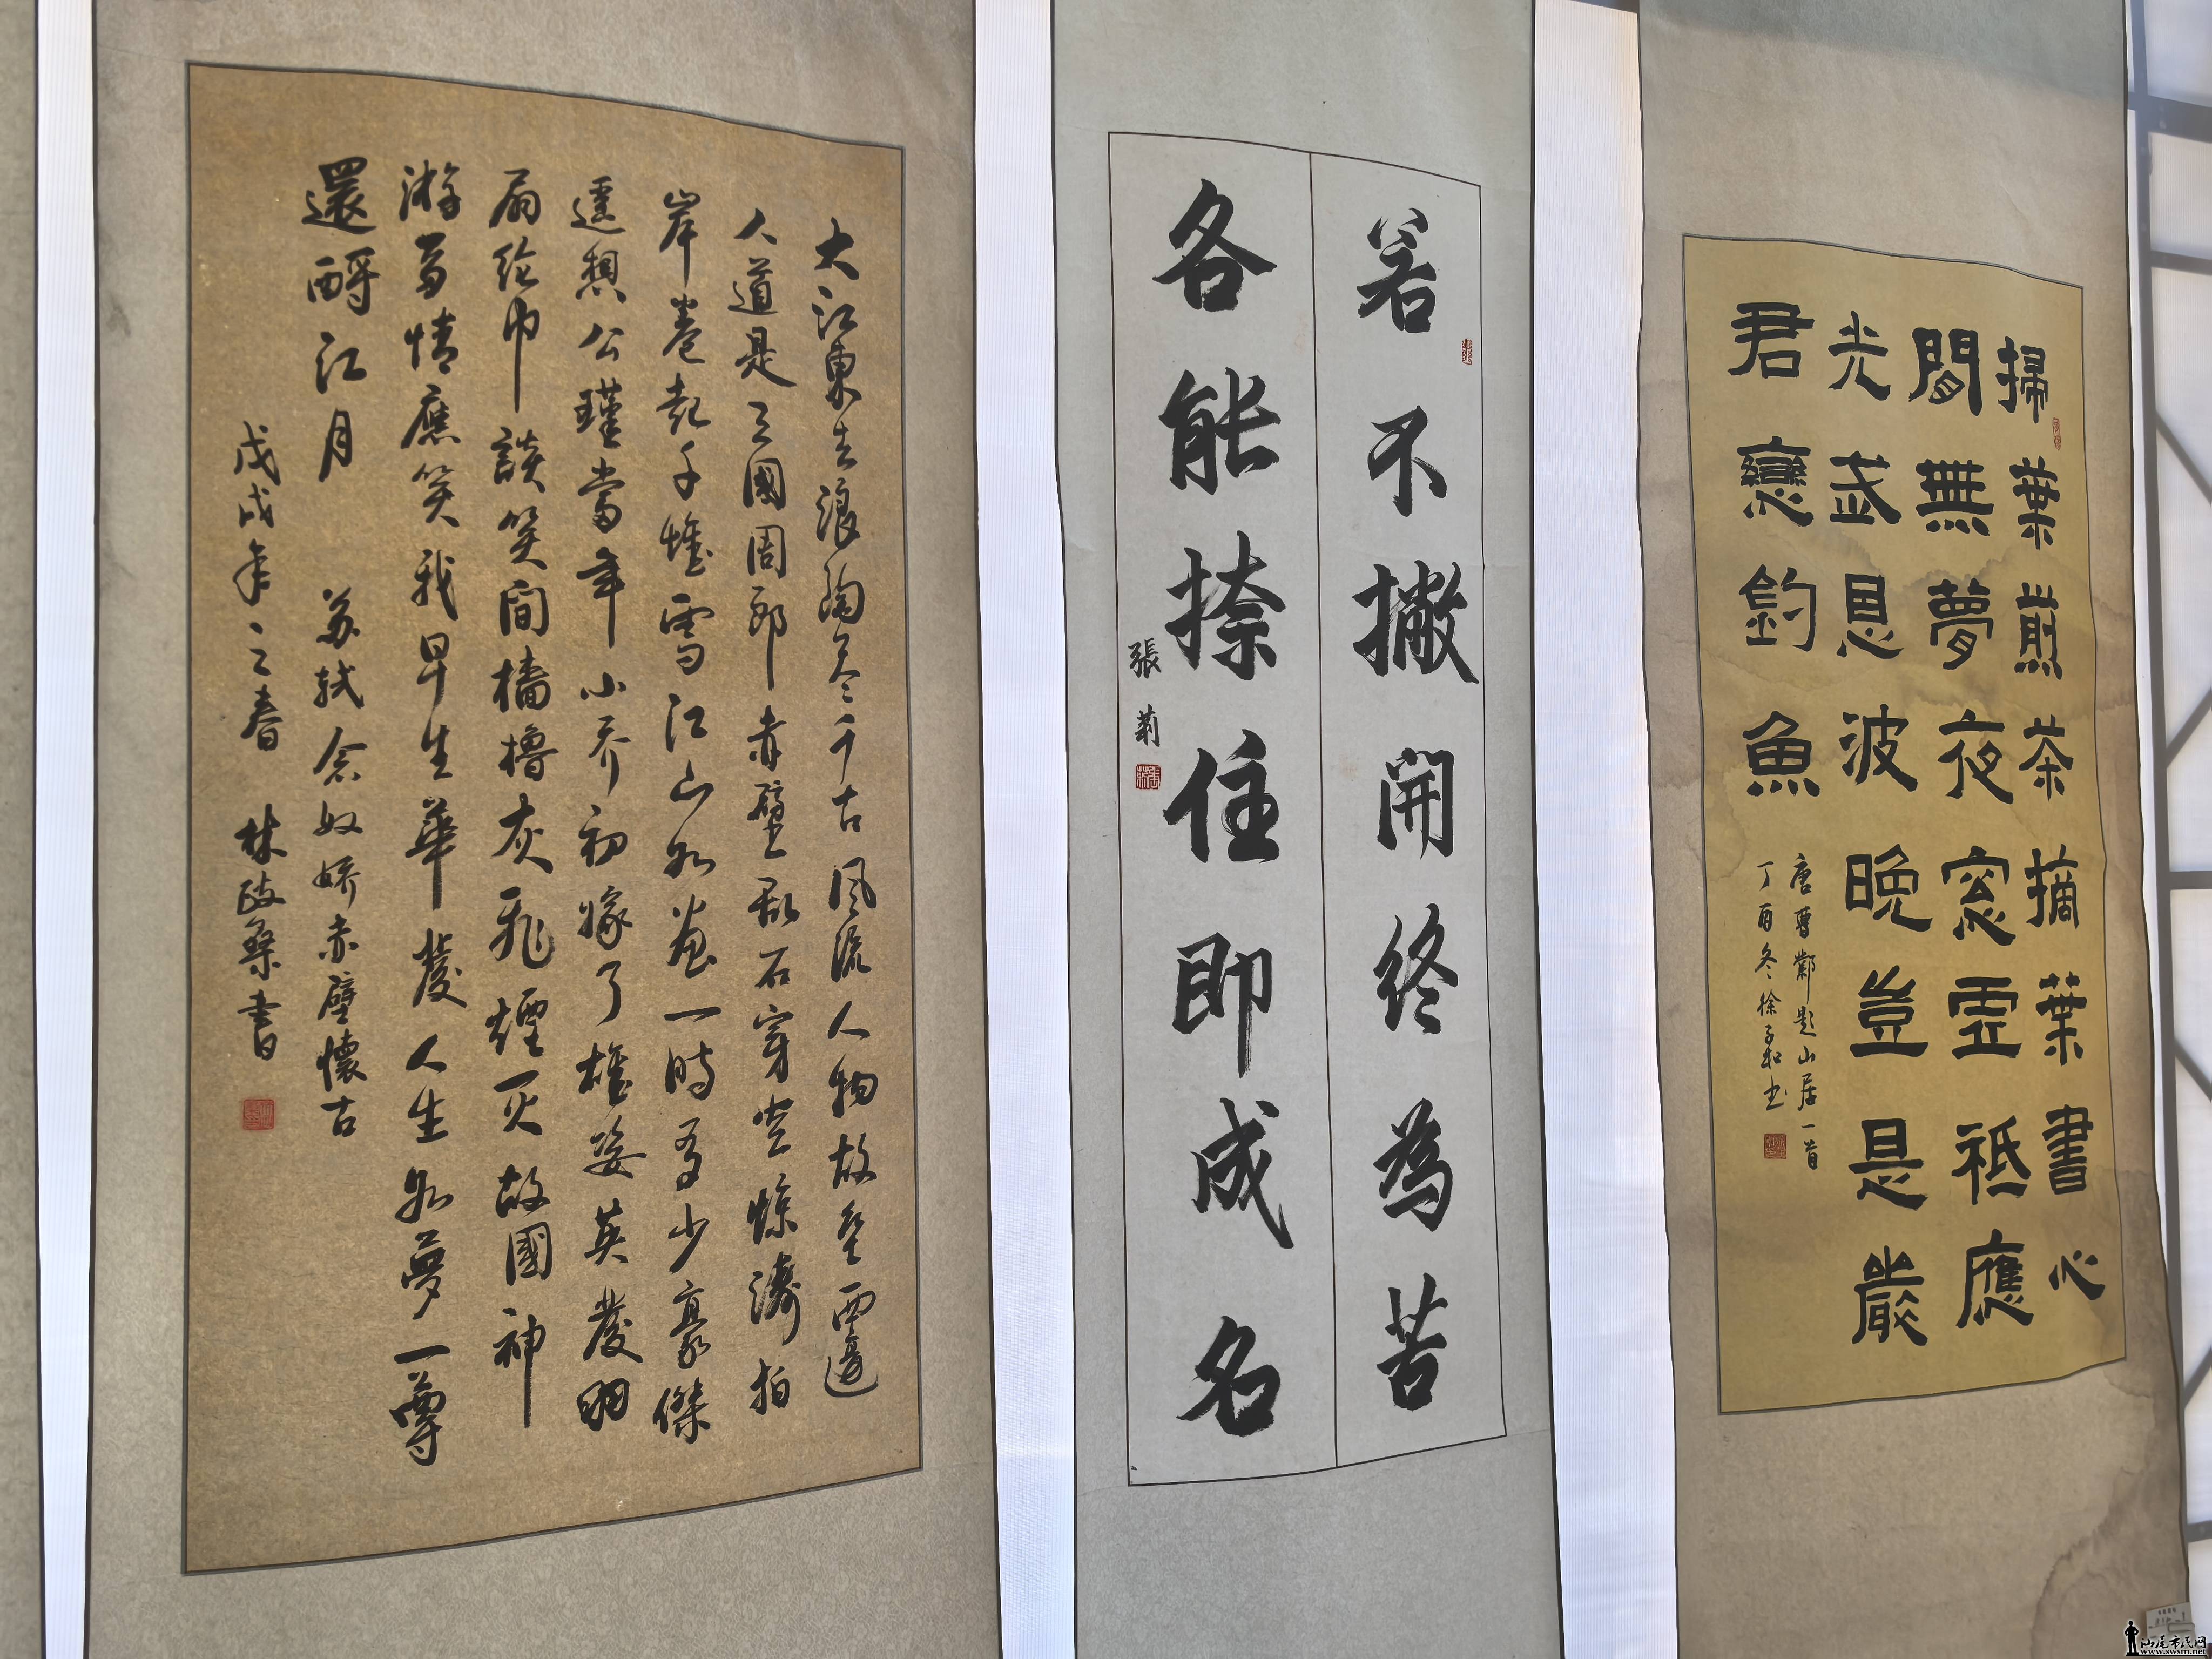 掃葉煎茶摘葉書心
閒無夢夜窓虛祗應
光武恩波晚豈是嚴
君戀釣魚
唐曹鄴題山居一首
丁酉冬徐子和书
若不撇開終為苦
各能捺住即成名
張莉
大江東去浪淘尽千古風流人物故壘西邊
人道是三國周郎赤壁乱石穿空惊濤拍
岸卷起千堆雪江山如畫一時多少豪傑
遥想公瑾當年小乔初嫁了雄姿英發羽
扇纶巾談笑間檣櫓灰飛煙灭故國神
游多情應笑我早生華發人生如夢一尊
還酹江月 苏轼念奴娇赤壁懷古
戊戌年之春 林政燊書
汕尾市民网
www.swsm.net